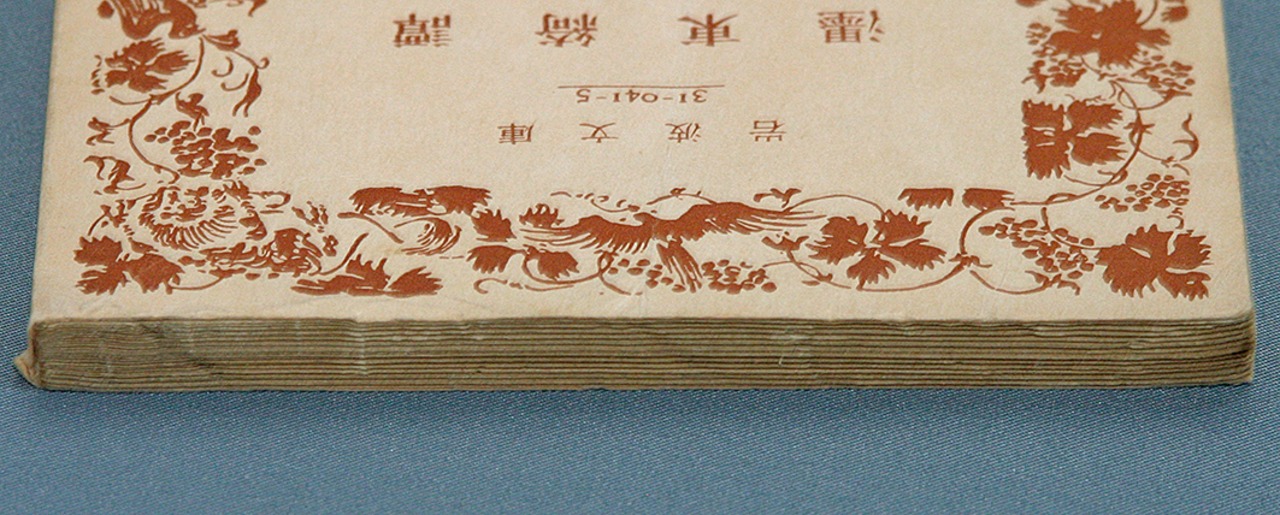 岩波文庫
31-041-5
濹東綺譚